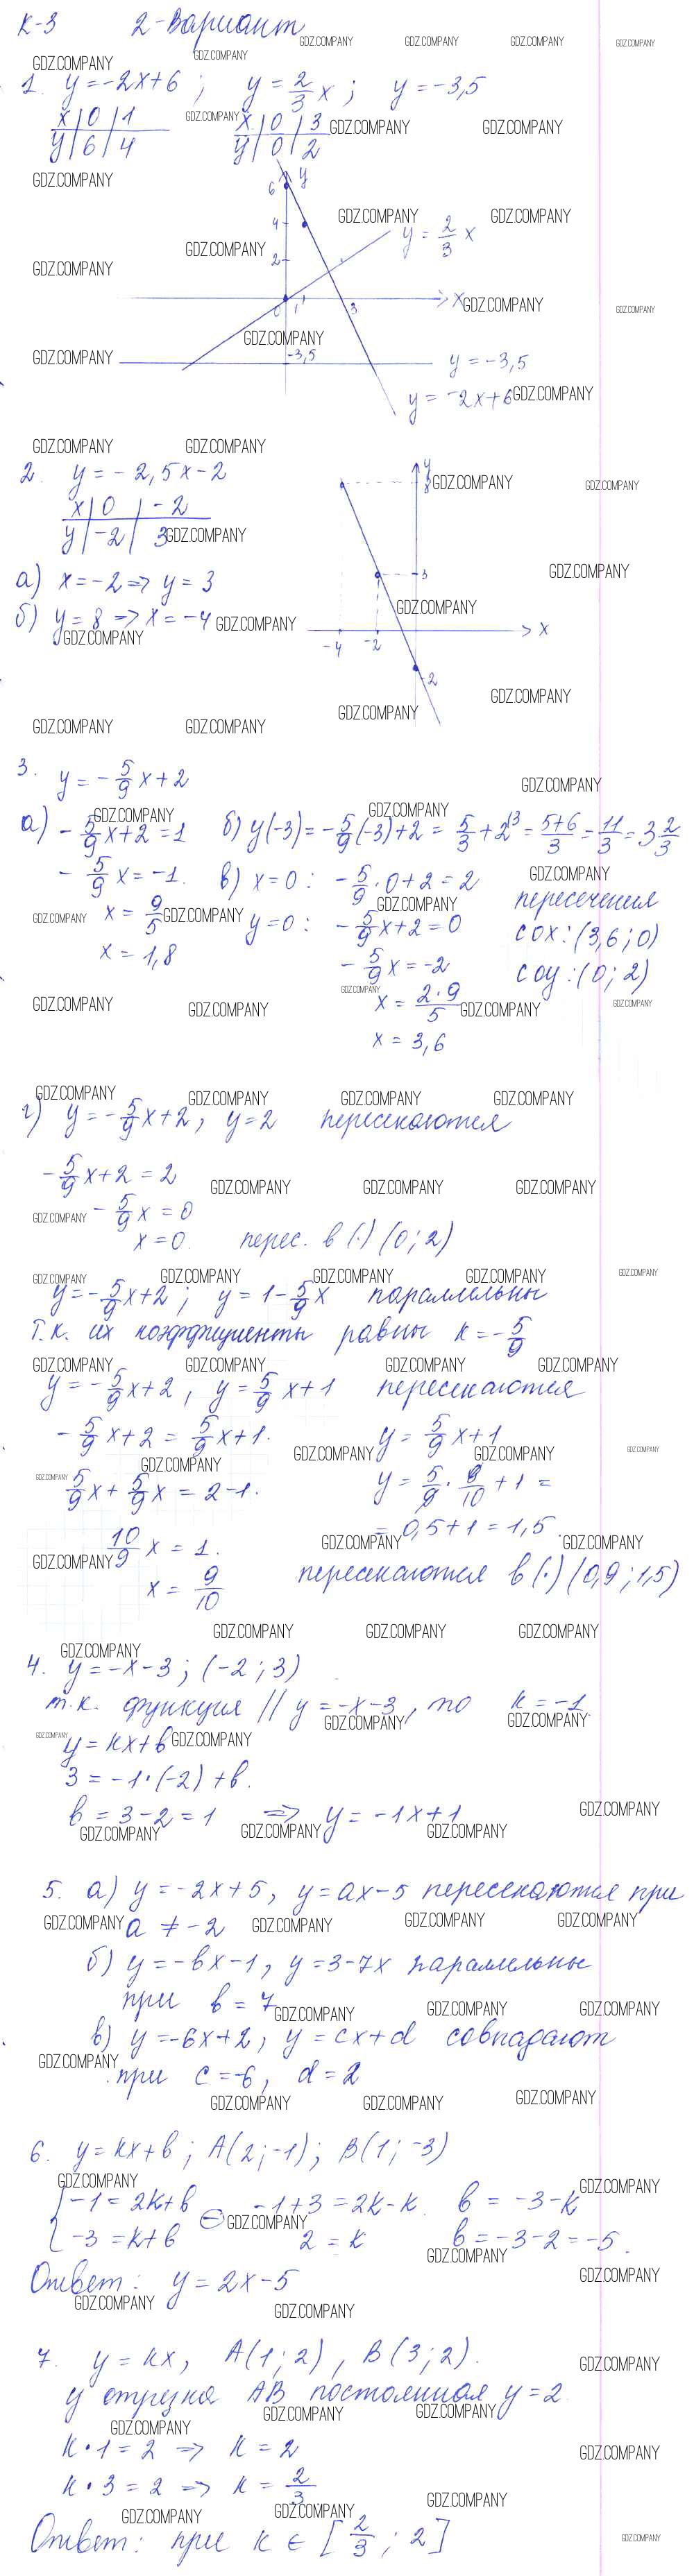 К-3 2-Вариант
1. y=-2x+6; y=2/3 x; y=-3,5
x | 0 | 1
y | 6 | 4
x | 0 | 3
y | 0 | 2
y
6
4
y = 2/3 x
2
0 1 3 x
-3,5
y = -3,5
y = -2x+6
2. y = -2,5x-2
x | 0 | -2
y | -2 | 3
а) x=-2 => y=3
б) y=8 => x=-4
y
8
3
-4 -2 x
-2
3. y = -5/9 x+2
а) -5/9 x+2=1
-5/9 x=-1.
x = 9/5
x = 1,8
б) y(-3) = -5/9(-3)+2 = 5/3+2^{13} = (5+6)/3 = 11/3 = 3 2/3
в) x=0: -5/9·0+2=2
y=0: -5/9x+2=0
-5/9x=-2
x = 2·9/5
x = 3,6
пересечения
с ox: (3,6; 0)
с oy: (0; 2)
г) y=-5/9x+2, y=2 пересекаются
-5/9x+2=2
-5/9x=0
x=0. перес. в (·) (0; 2)
y=-5/9x+2; y=1-5/9x параллельны
т.к. их коэффициенты равны k=-5/9
y=-5/9x+2, y=5/9x+1 пересекаются
-5/9x+2=5/9x+1.
5/9x+5/9x=2-1.
10/9 x=1.
x=9/10
y=5/9x+1
y=5/9·9/10+1=
=0,5+1=1,5.
пересекаются в (·) (0,9; 1,5)
4. y=-x-3; (-2; 3)
т.к. функция // y=-x-3, то k=-1.
y=kx+b
3=-1·(-2)+b.
b=3-2=1 => y=-1x+1
5. а) y=-2x+5, y=ax-5 пересекаются при
a ≠ -2
б) y=-bx-1, y=3-7x параллельны
при b=7
в) y=-6x+2, y=cx+d совпадают
при c=-6, d=2
6. y=kx+b; A(2;-1); B(1;-3)
{ -1=2k+b
-3=k+b ⊖
-1+3=2k-k.
2=k
b=-3-k
b=-3-2=-5.
Ответ: y=2x-5
7. y=kx, A(1; 2), B(3; 2).
у отрезка AB постоянная y=2
k·1=2 => k=2
k·3=2 => k=2/3
Ответ: при k ∈ [2/3; 2]
GDZ.COMPANY